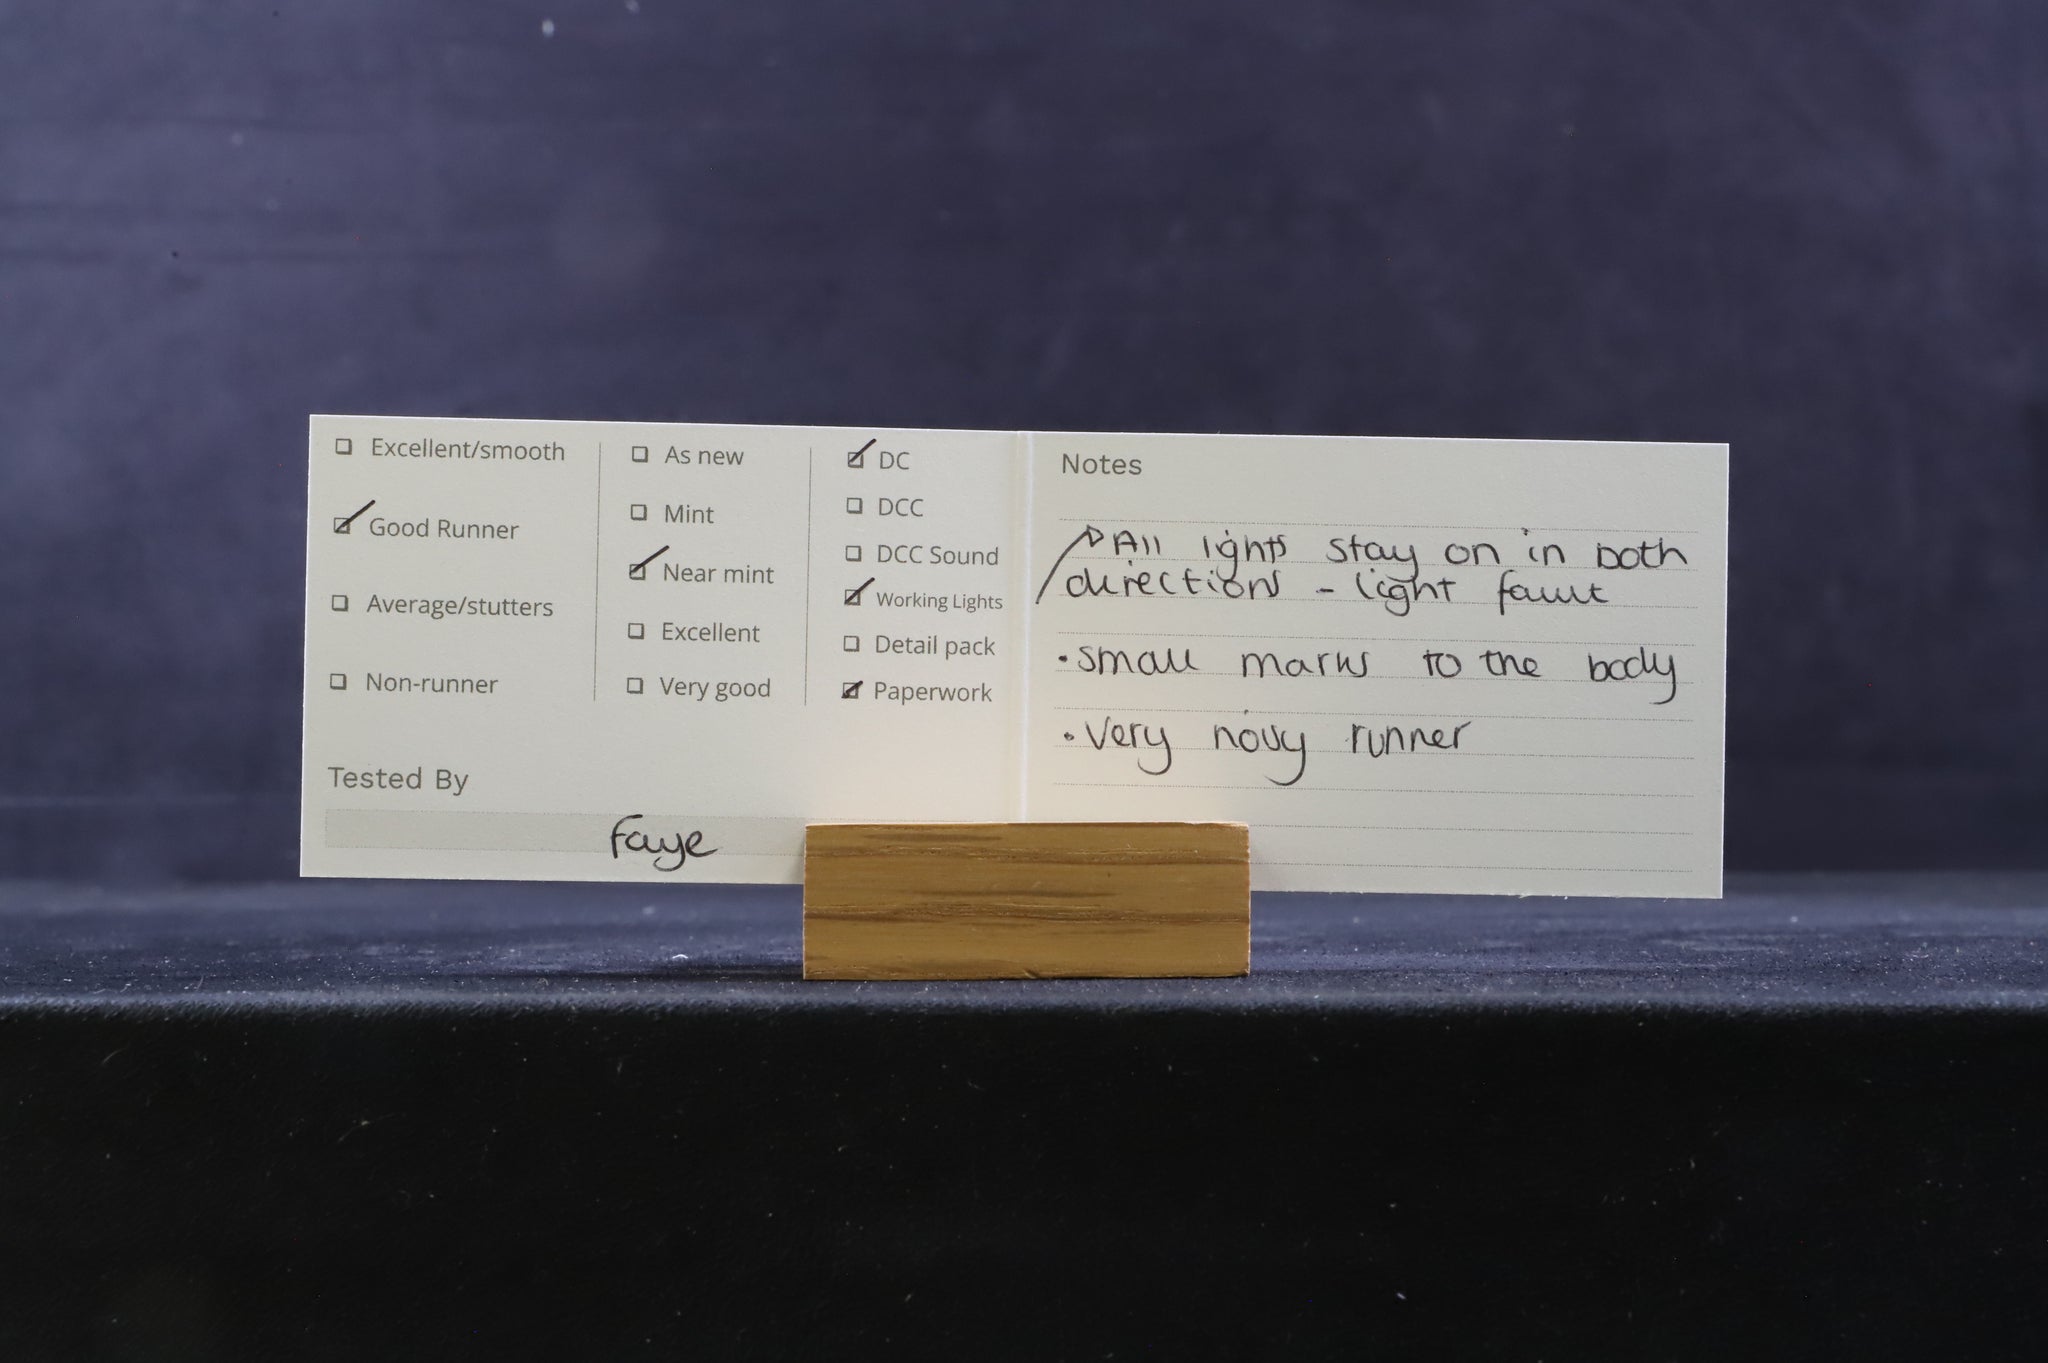 Excellent/smooth
Good Runner
Average/stutters
Non-runner
As new
Mint
Near mint
Excellent
Very good
DC
DCC
DCC Sound
Working Lights
Detail pack
Paperwork
Tested By
Faye
Notes
All lights stay on in both
directions - light fault
• small marks to the body
• Very noisy runner